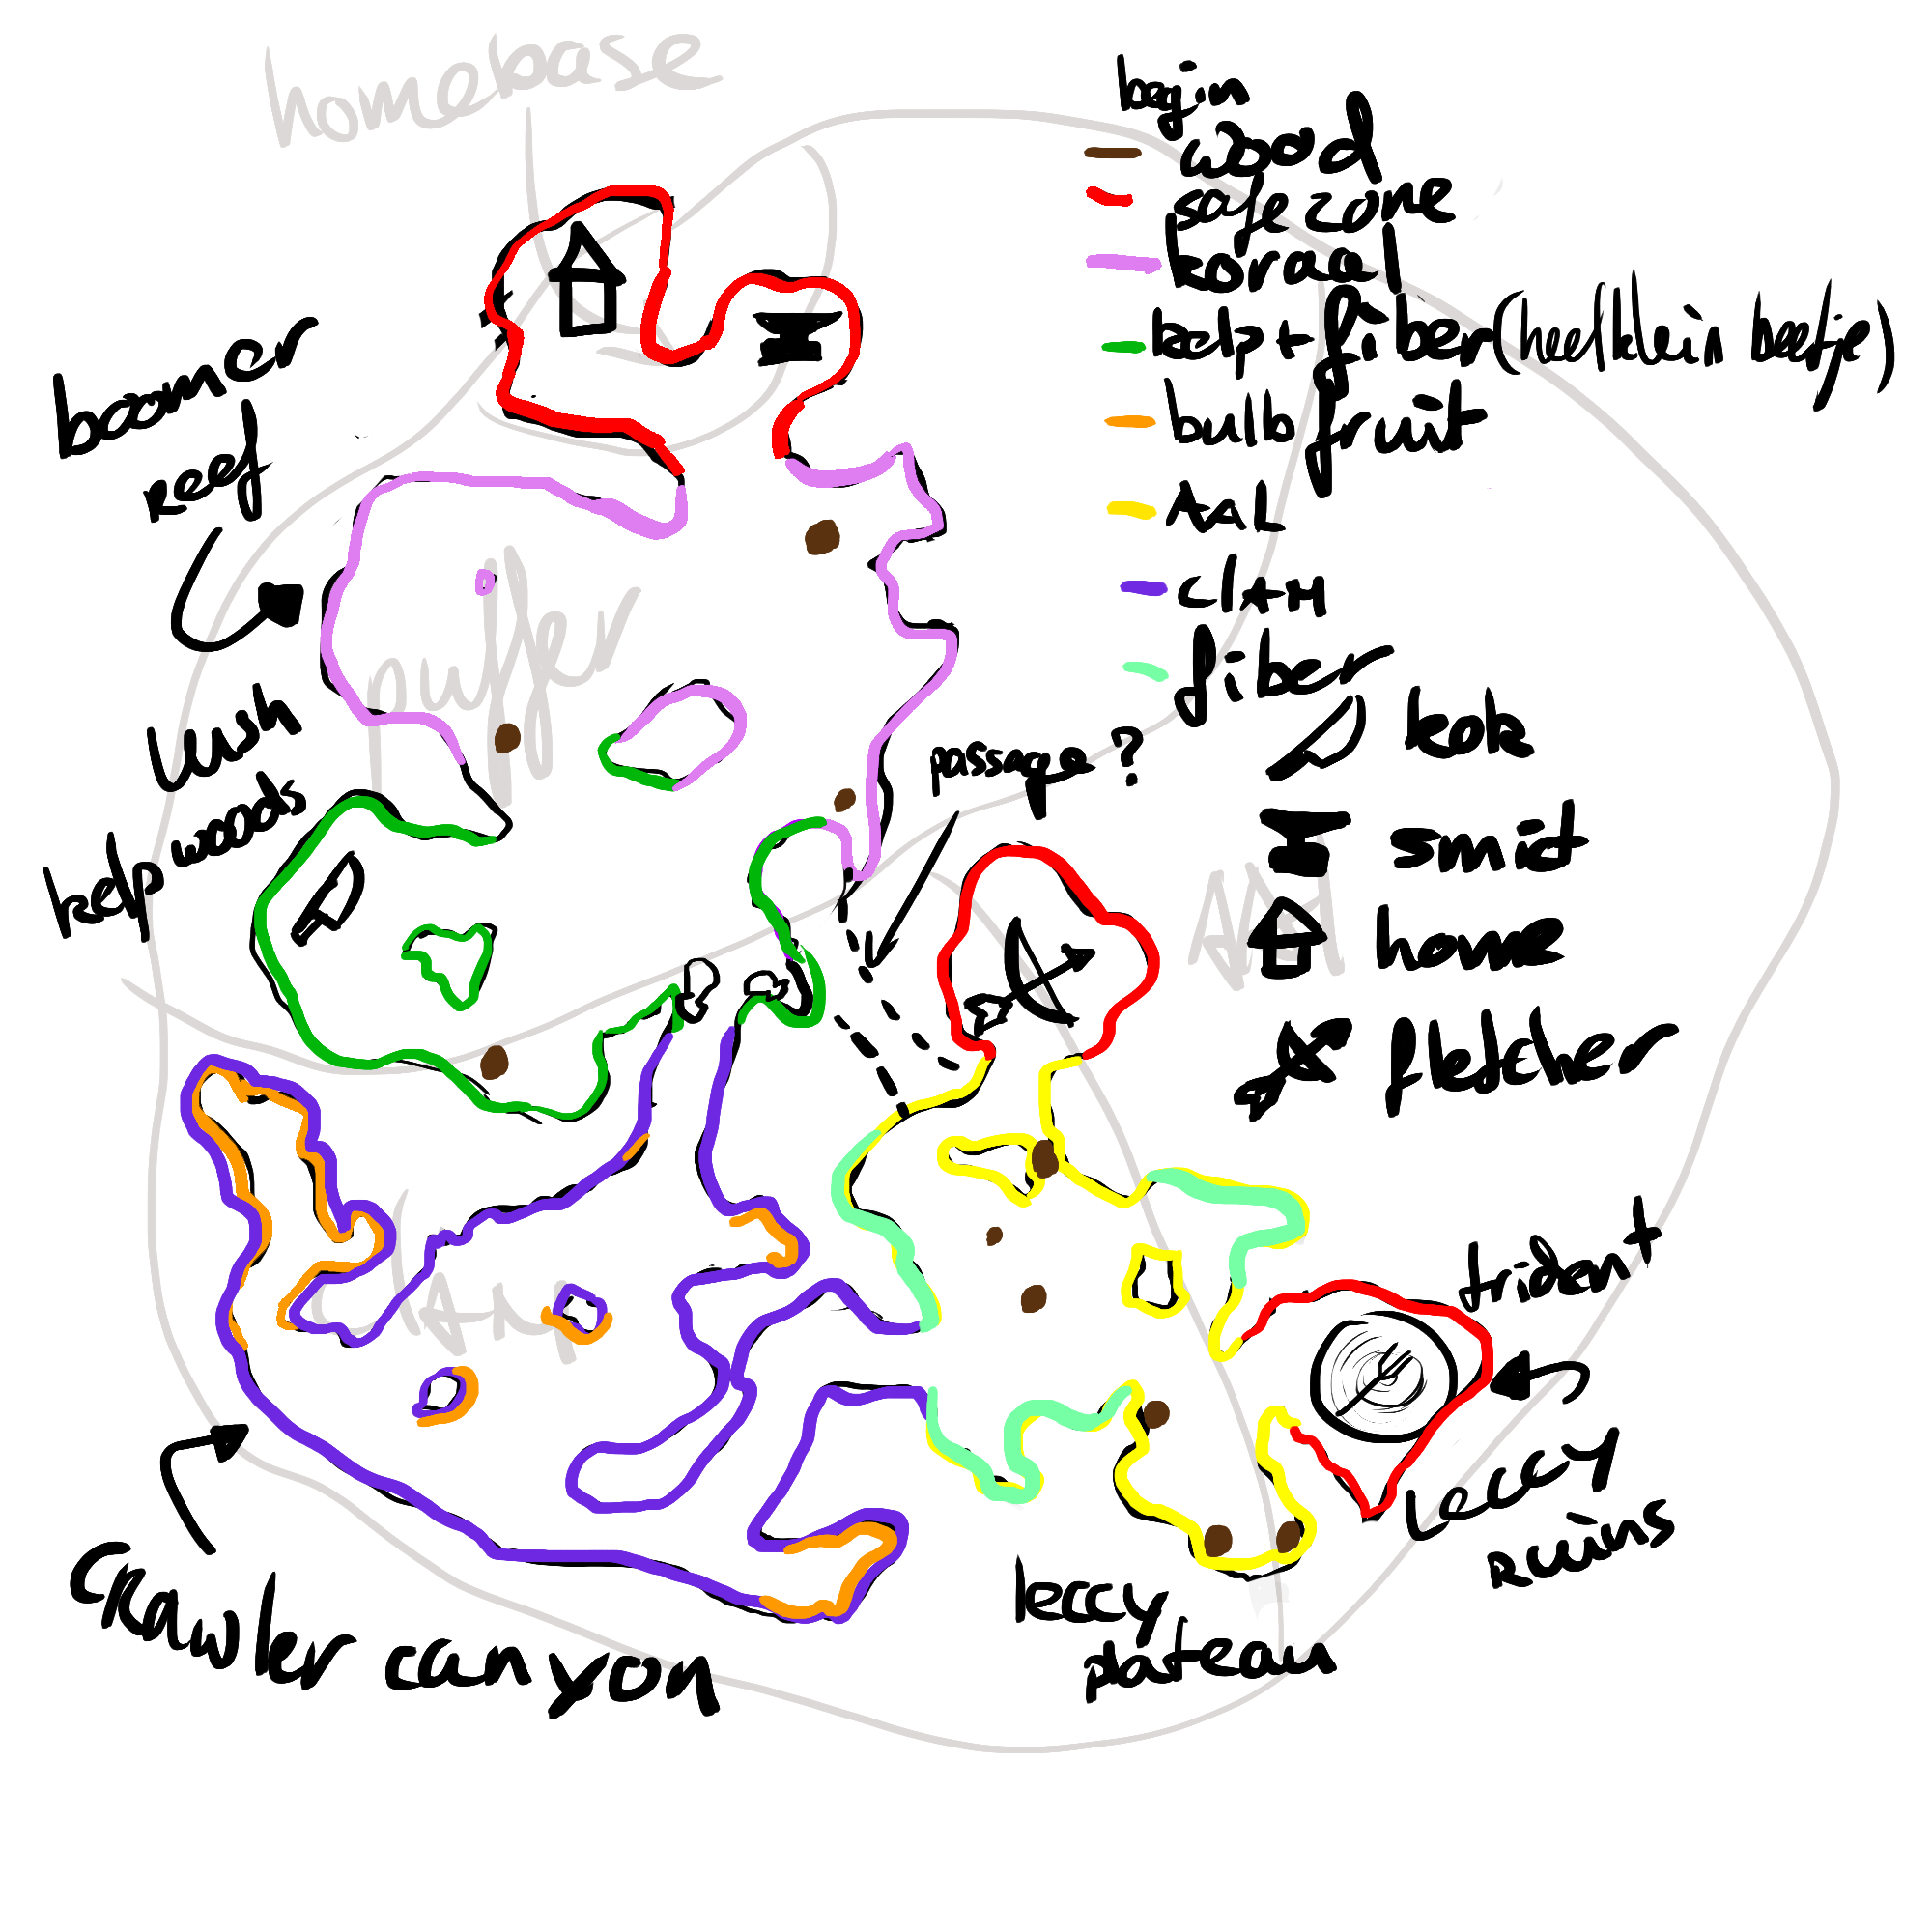 homebase
begin
wood
safezone
koraal
kelp + fiber (heel klein beetje)
bulbfruit
AAL
clAM
fiber
kok
smid
home
fletcher
boomer
reef
puffer
lush
kelp woods
passage?
AAl
clAM
trident
leccy
ruins
leccy
plateau
Crawler canyon